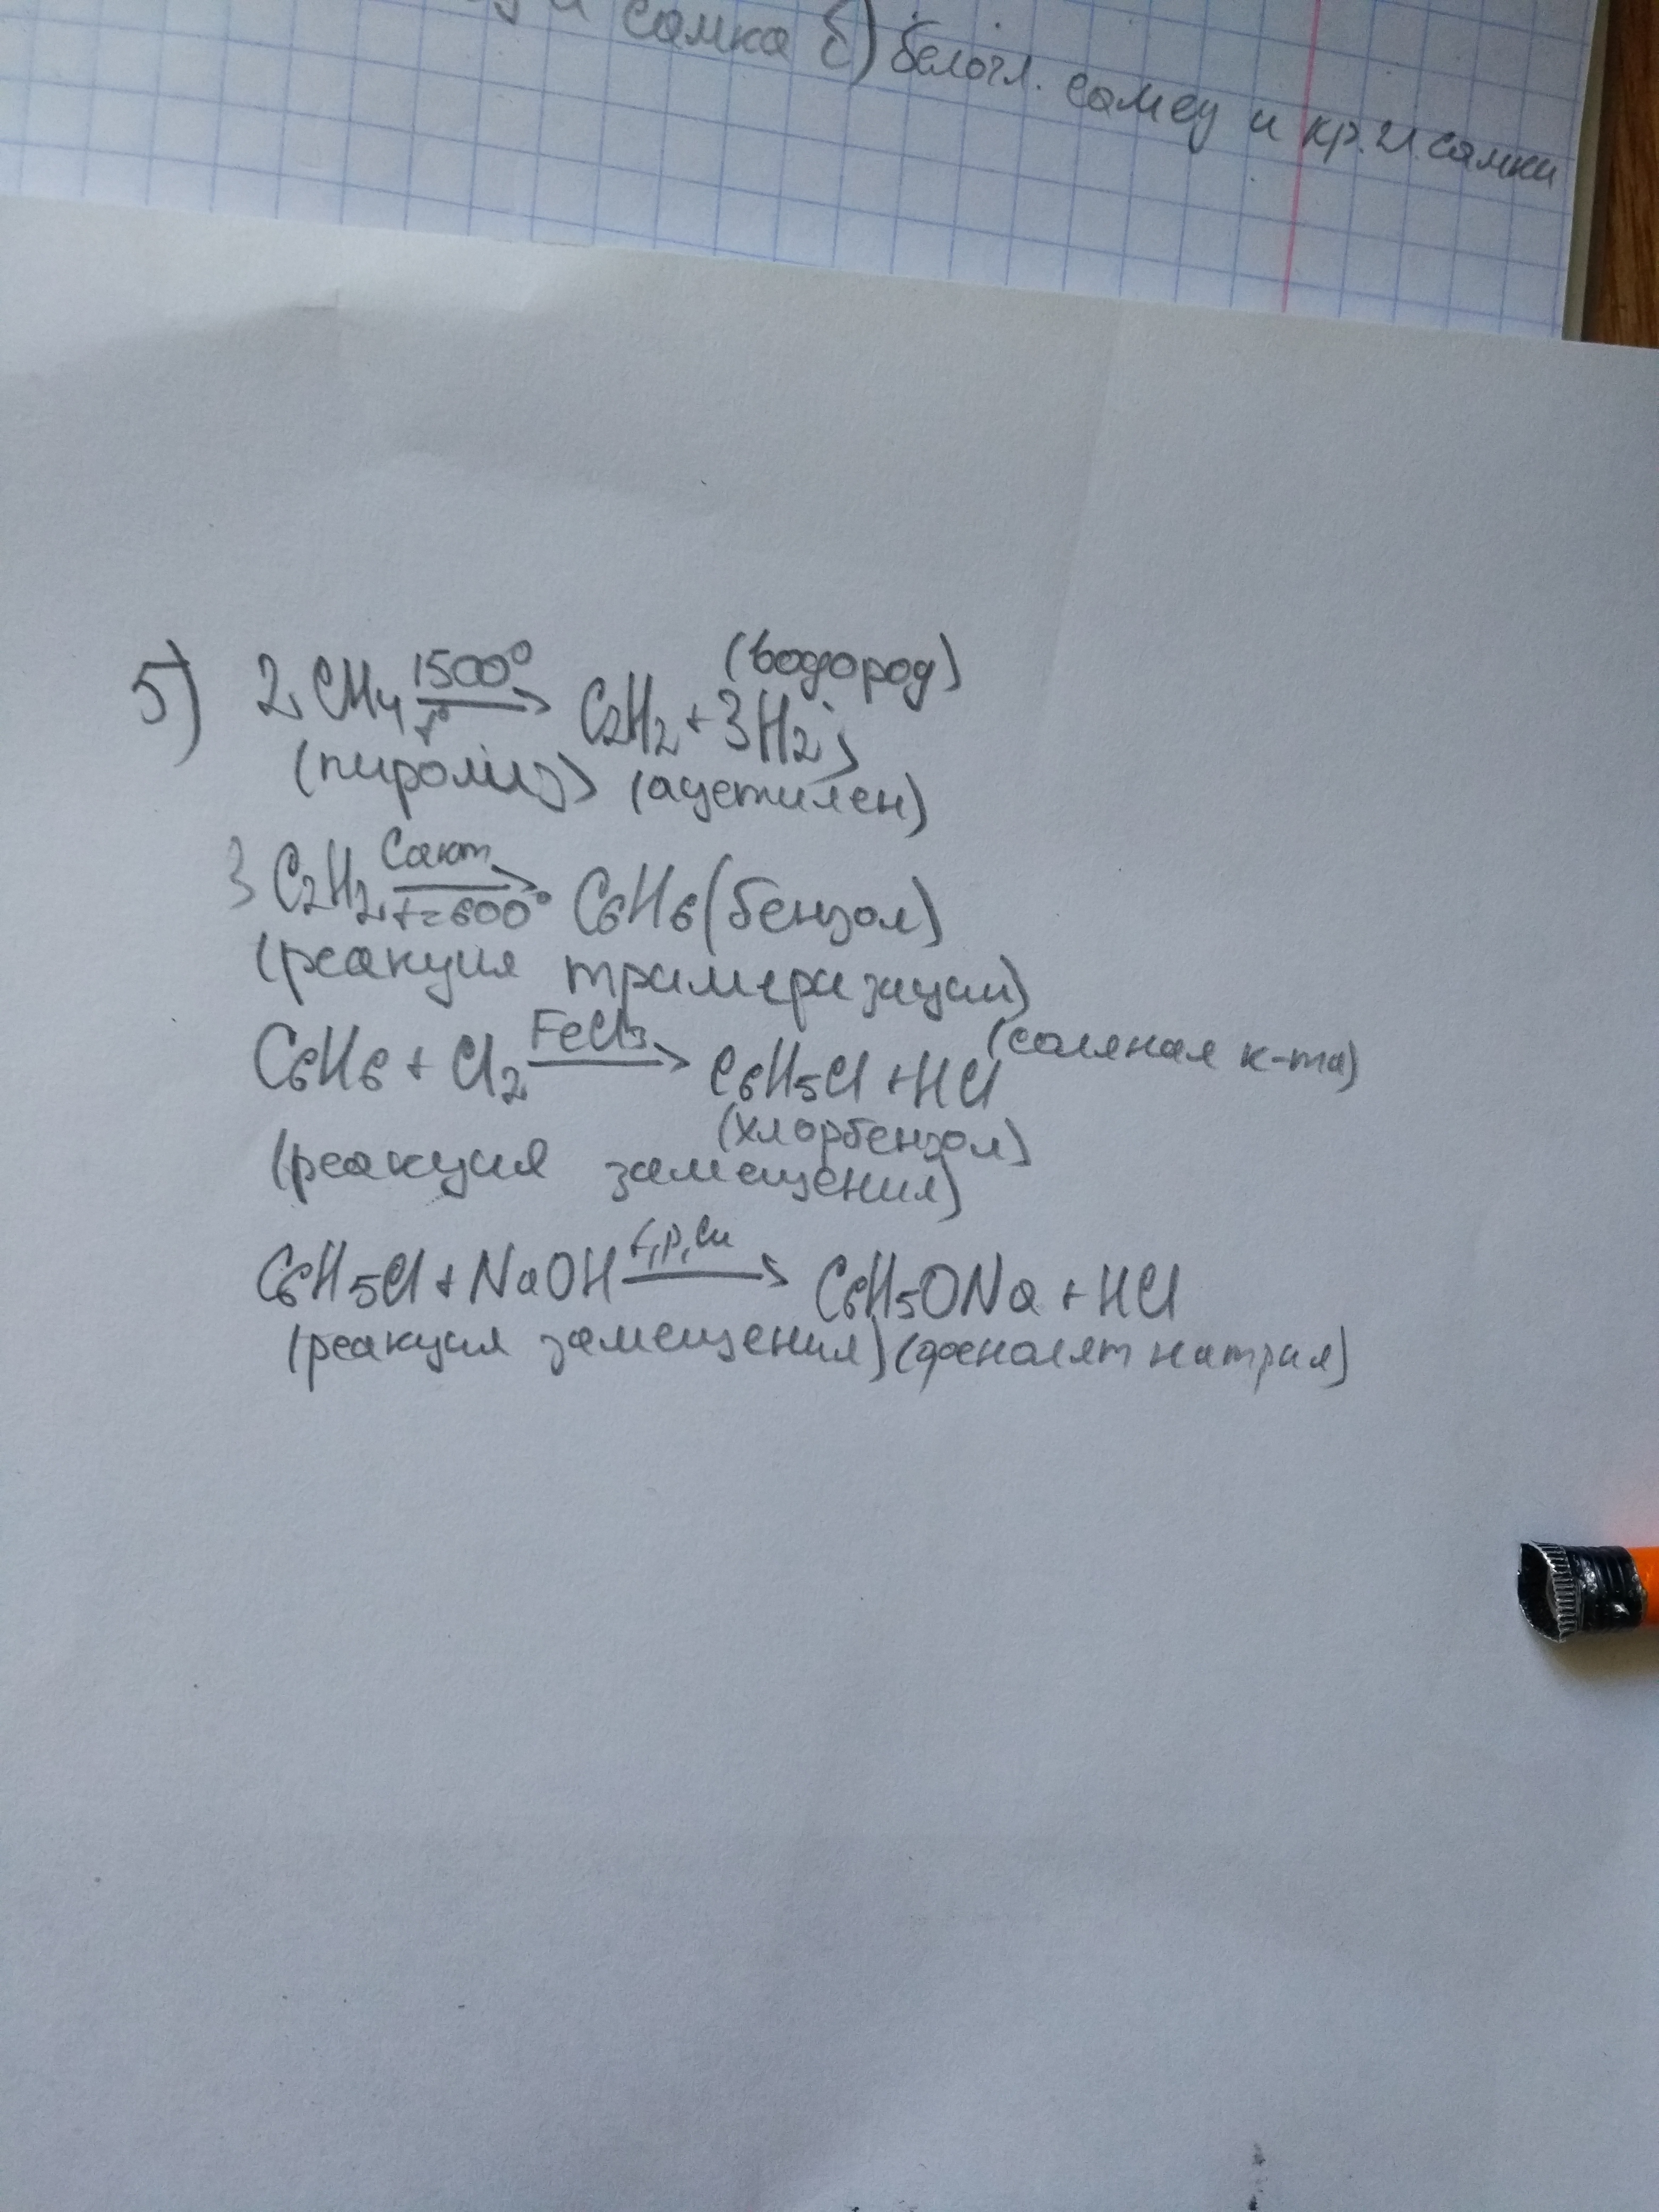 самка б) белогл. самец и кр. гл. самки
(водород)
5) 2CH4 1500° t° → C2H2 + 3H2;
(пиролиз) (ацетилен)
3C2H2 Cакт t=600° → C6H6 (бензол)
(реакция тримеризации)
C6H6 + Cl2 FeCl3 → C6H5Cl + HCl (соляная к-та)
(хлорбензол)
(реакция замещения)
C6H5Cl + NaOH t,p,Cu → C6H5ONa + HCl
(реакция замещения) (фенолят натрия)